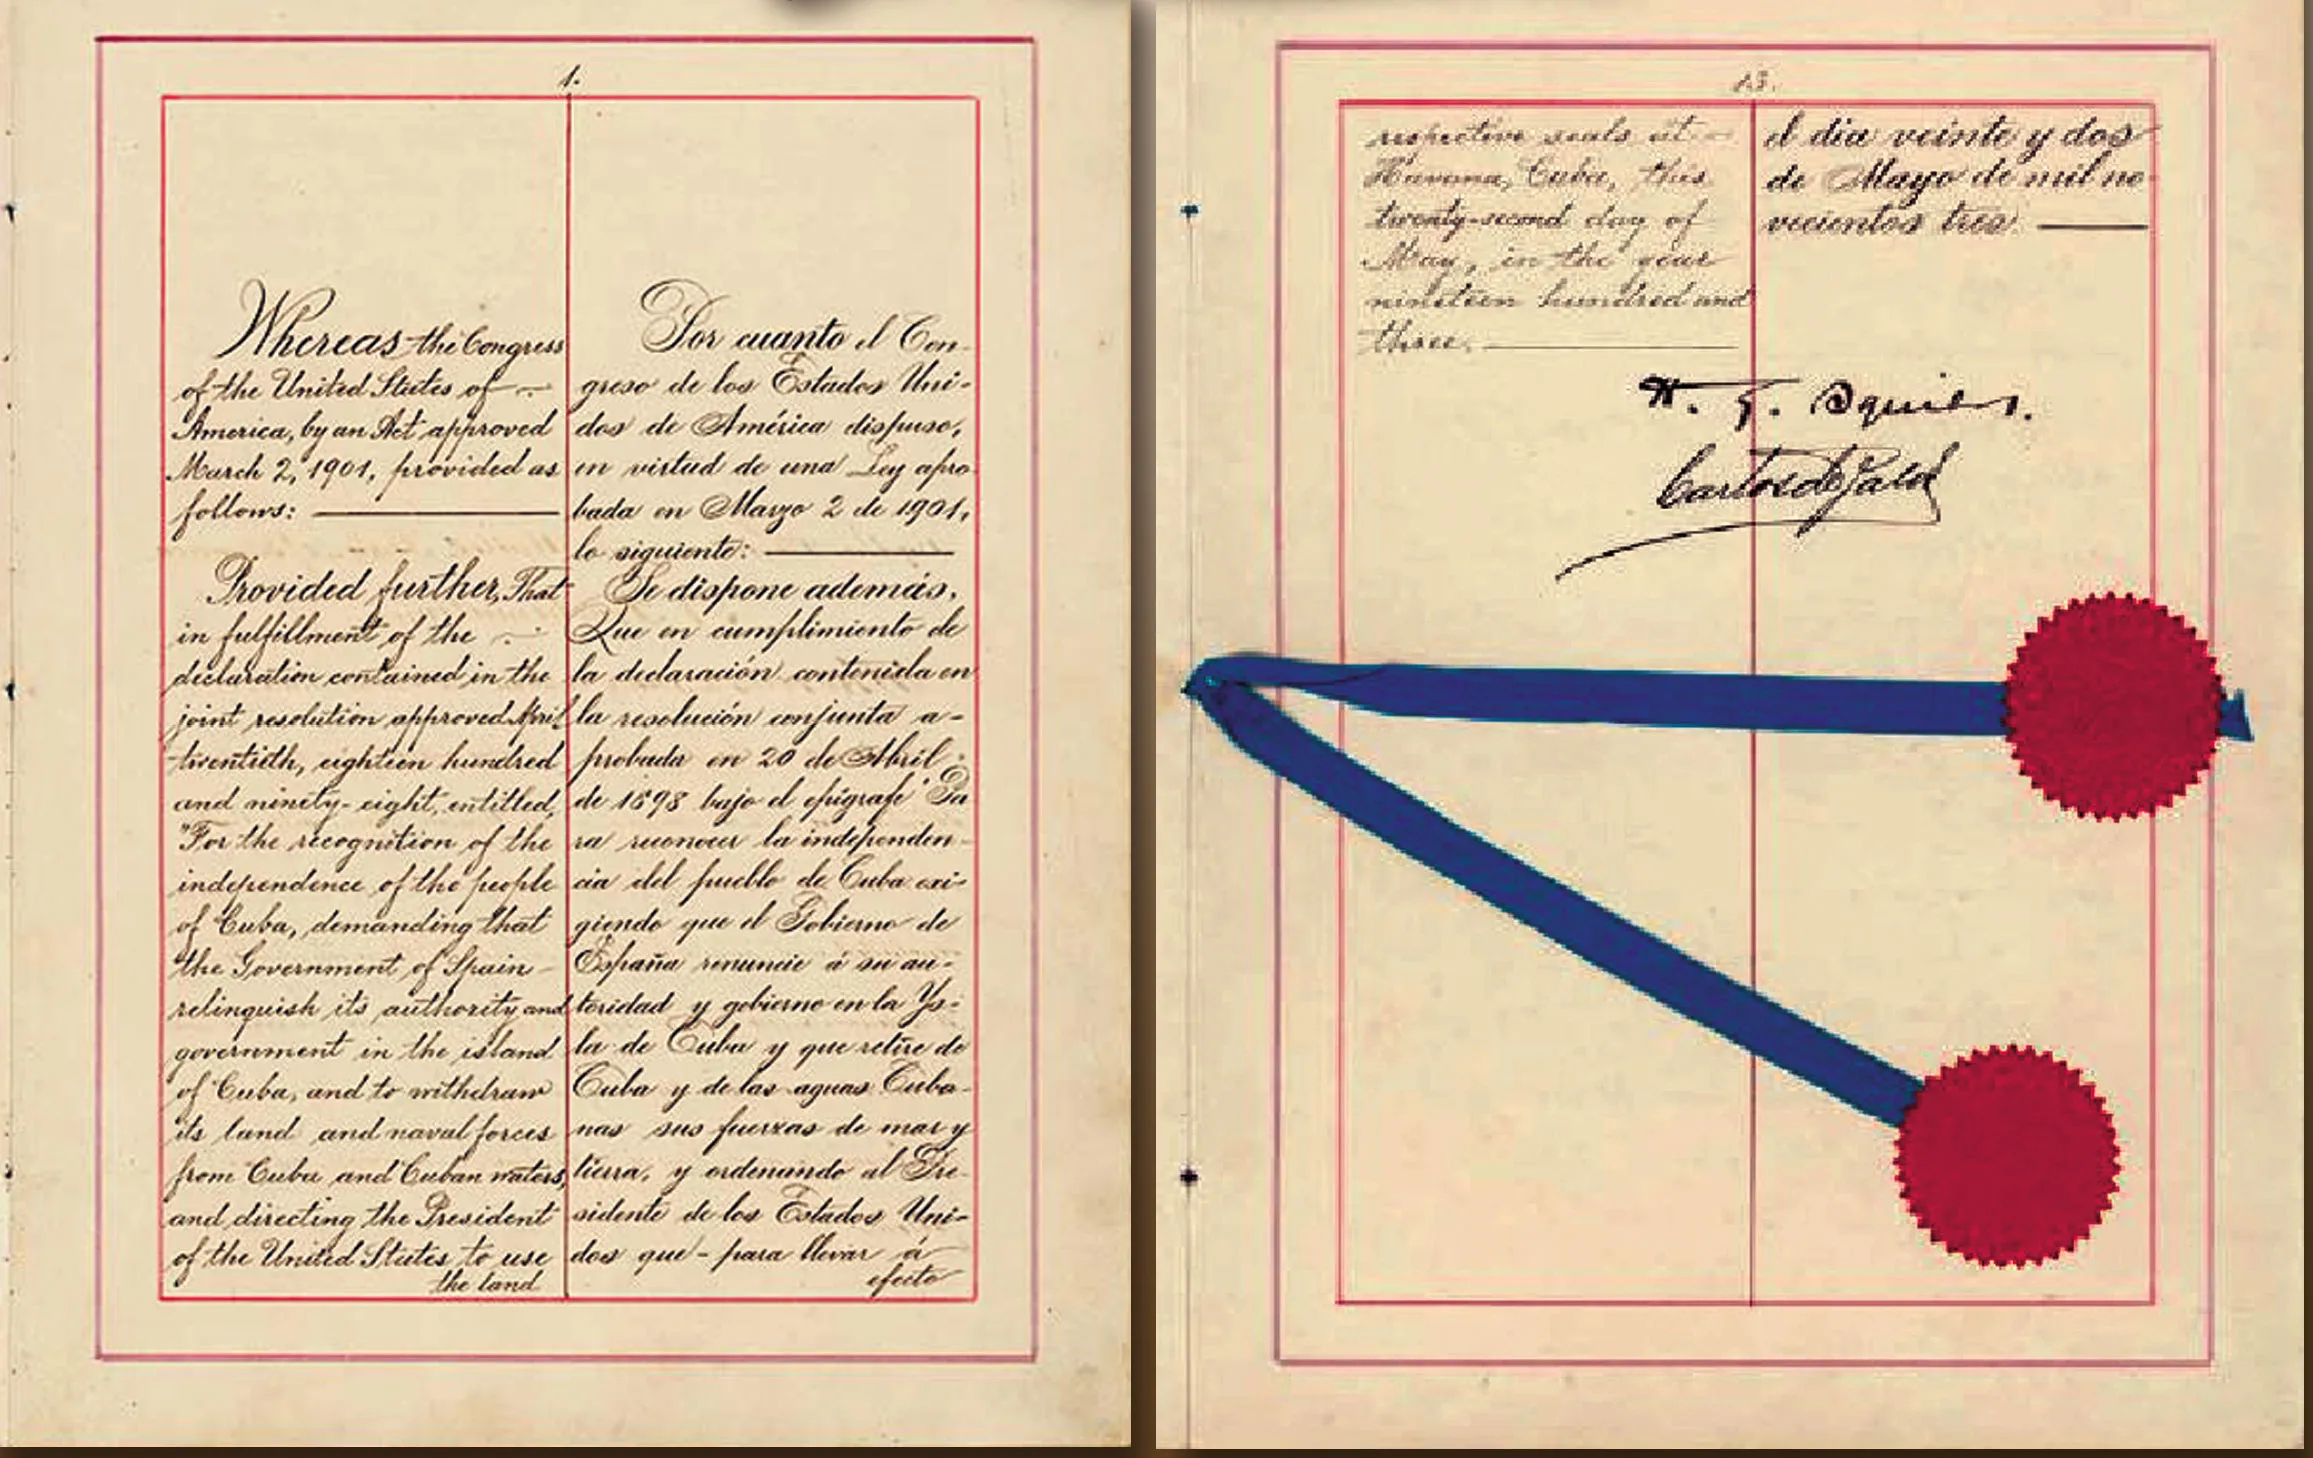 1.
Whereas the Congress
of the United States of
America, by an Act approved
March 2, 1901, provided as
follows:
Provided further, That
in fulfillment of the
declaration contained in the
joint resolution approved April
twentieth, eighteen hundred
and ninety-eight, entitled,
"For the recognition of the
independence of the people
of Cuba, demanding that
the Government of Spain
relinquish its authority and
government in the island
of Cuba, and to withdraw
its land and naval forces
from Cuba and Cuban waters,
and directing the President
of the United States to use
the land
Por cuanto el Con-
greso de los Estados Uni-
dos de América dispuso,
en virtud de una Ley apro
bada en Marzo 2 de 1901,
lo siguiente:
Se dispone además,
Que en cumplimiento de
la declaración contenida en
la resolución conjunta a-
probada en 20 de Abril
de 1898 bajo el epígrafe "Pa
ra reconocer la independen-
cia del pueblo de Cuba exi-
giendo que el Gobierno de
España renuncie á su au-
toridad y gobierno en la Ys-
la de Cuba y que retire de
Cuba y de las aguas Cuba-
nas sus fuerzas de mar y
tierra, y ordenando al Pre-
sidente de los Estados Uni-
dos que - para llevar á
efecto
13.
respective seals at
Havana, Cuba, this
twenty-second day of
May, in the year
nineteen hundred and
three.
el dia veinte y dos
de Mayo de mil no-
vecientos tres.
H. G. Squiers.
Carlos de Zaldo